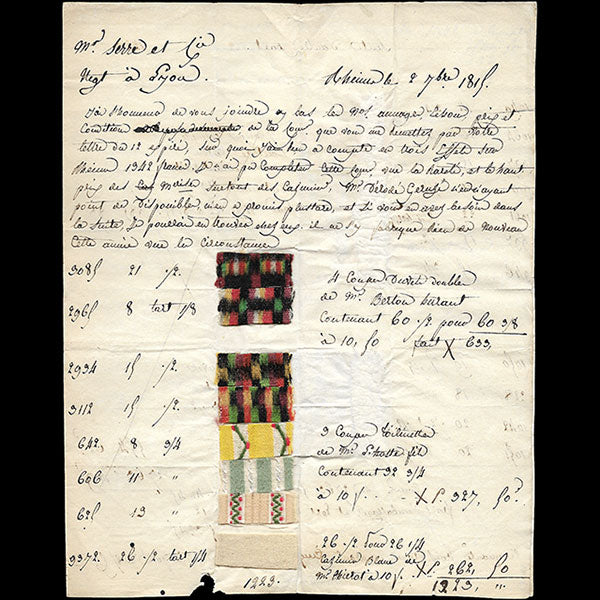 Mr Serre et Cie
Negt à Lyon.
Rheims le 2 7bre 1815.
J'ai l'honneur de vous joindre cy bas le No, aunage, Lison, prix et
Condition de la Com. que vous me remettez par votre
lettre du 12 expiré, sur quoi j'ai lieu à compte en trois Effets sur
Rheims 1342 francs. Je n'ai pu Completter Cette Com. vu la Rareté, et le haut
prix des Mdises surtout des Casimirs, Mr. Derode Geruzez n'en ayant
point de Disponible, m'en a promis plus tard, et si vous en avez besoin dans
la Suite, Je pourrai en trouver chez eux. il ne s'y fabrique rien de Nouveau
Cette année vu les Circonstances
3085 21 ./2.
2965 8 tart 1/8
4 Coupes Duvets doubles
de Mr. Berton Durant
Contenant 60 ./2 pour 60 3/8
à 10, 50 fait X 633,
2934 15 ./2
3112 15
642 8 3/4
606 11 "
625 13 "
3 Coupes Toilinette
de Mr. fils
Contenant 32 3/4
à 10 f. X f. 327, 50.
3372. 26 ./2 tart 1/4
26 ./2 pour 26 1/4
Casimir Blanc de
Mr. à 10 f. X f. 262, 50
1223. 1223, "